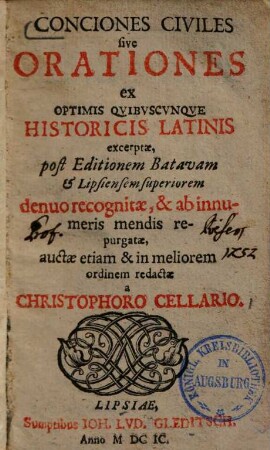 CONCIONES CIVILES
sive
ORATIONES
ex
OPTIMIS QVIBVSCVNQVE
HISTORICIS LATINIS
excerptæ,
post Editionem Batavam
& Lipsiensem superiorem
denuo recognitæ, & ab innu-
meris mendis re-
purgatæ,
auctæ etiam & in meliorem
ordinem redactæ
a
CHRISTOPHORO CELLARIO.
LIPSIAE,
Sumptibus IOH. LVD. GLEDITSCH.
Anno M DC IC.
Prof.
KÖNIGL. KREISBIBLIOTHEK
IN
AUGSBURG